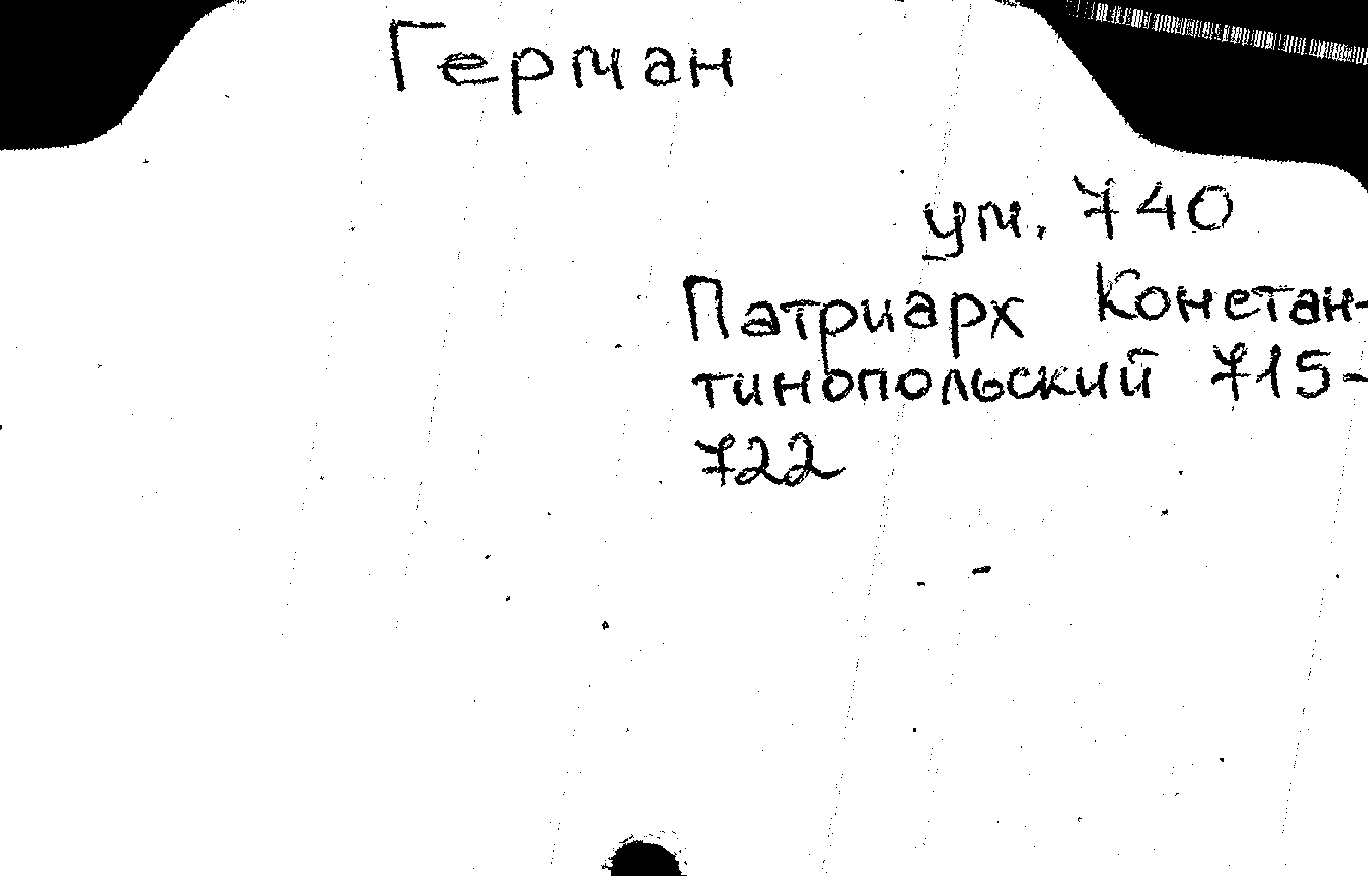 Герман
ум. 740
Патриарх Констан-
тинопольский 715-
722